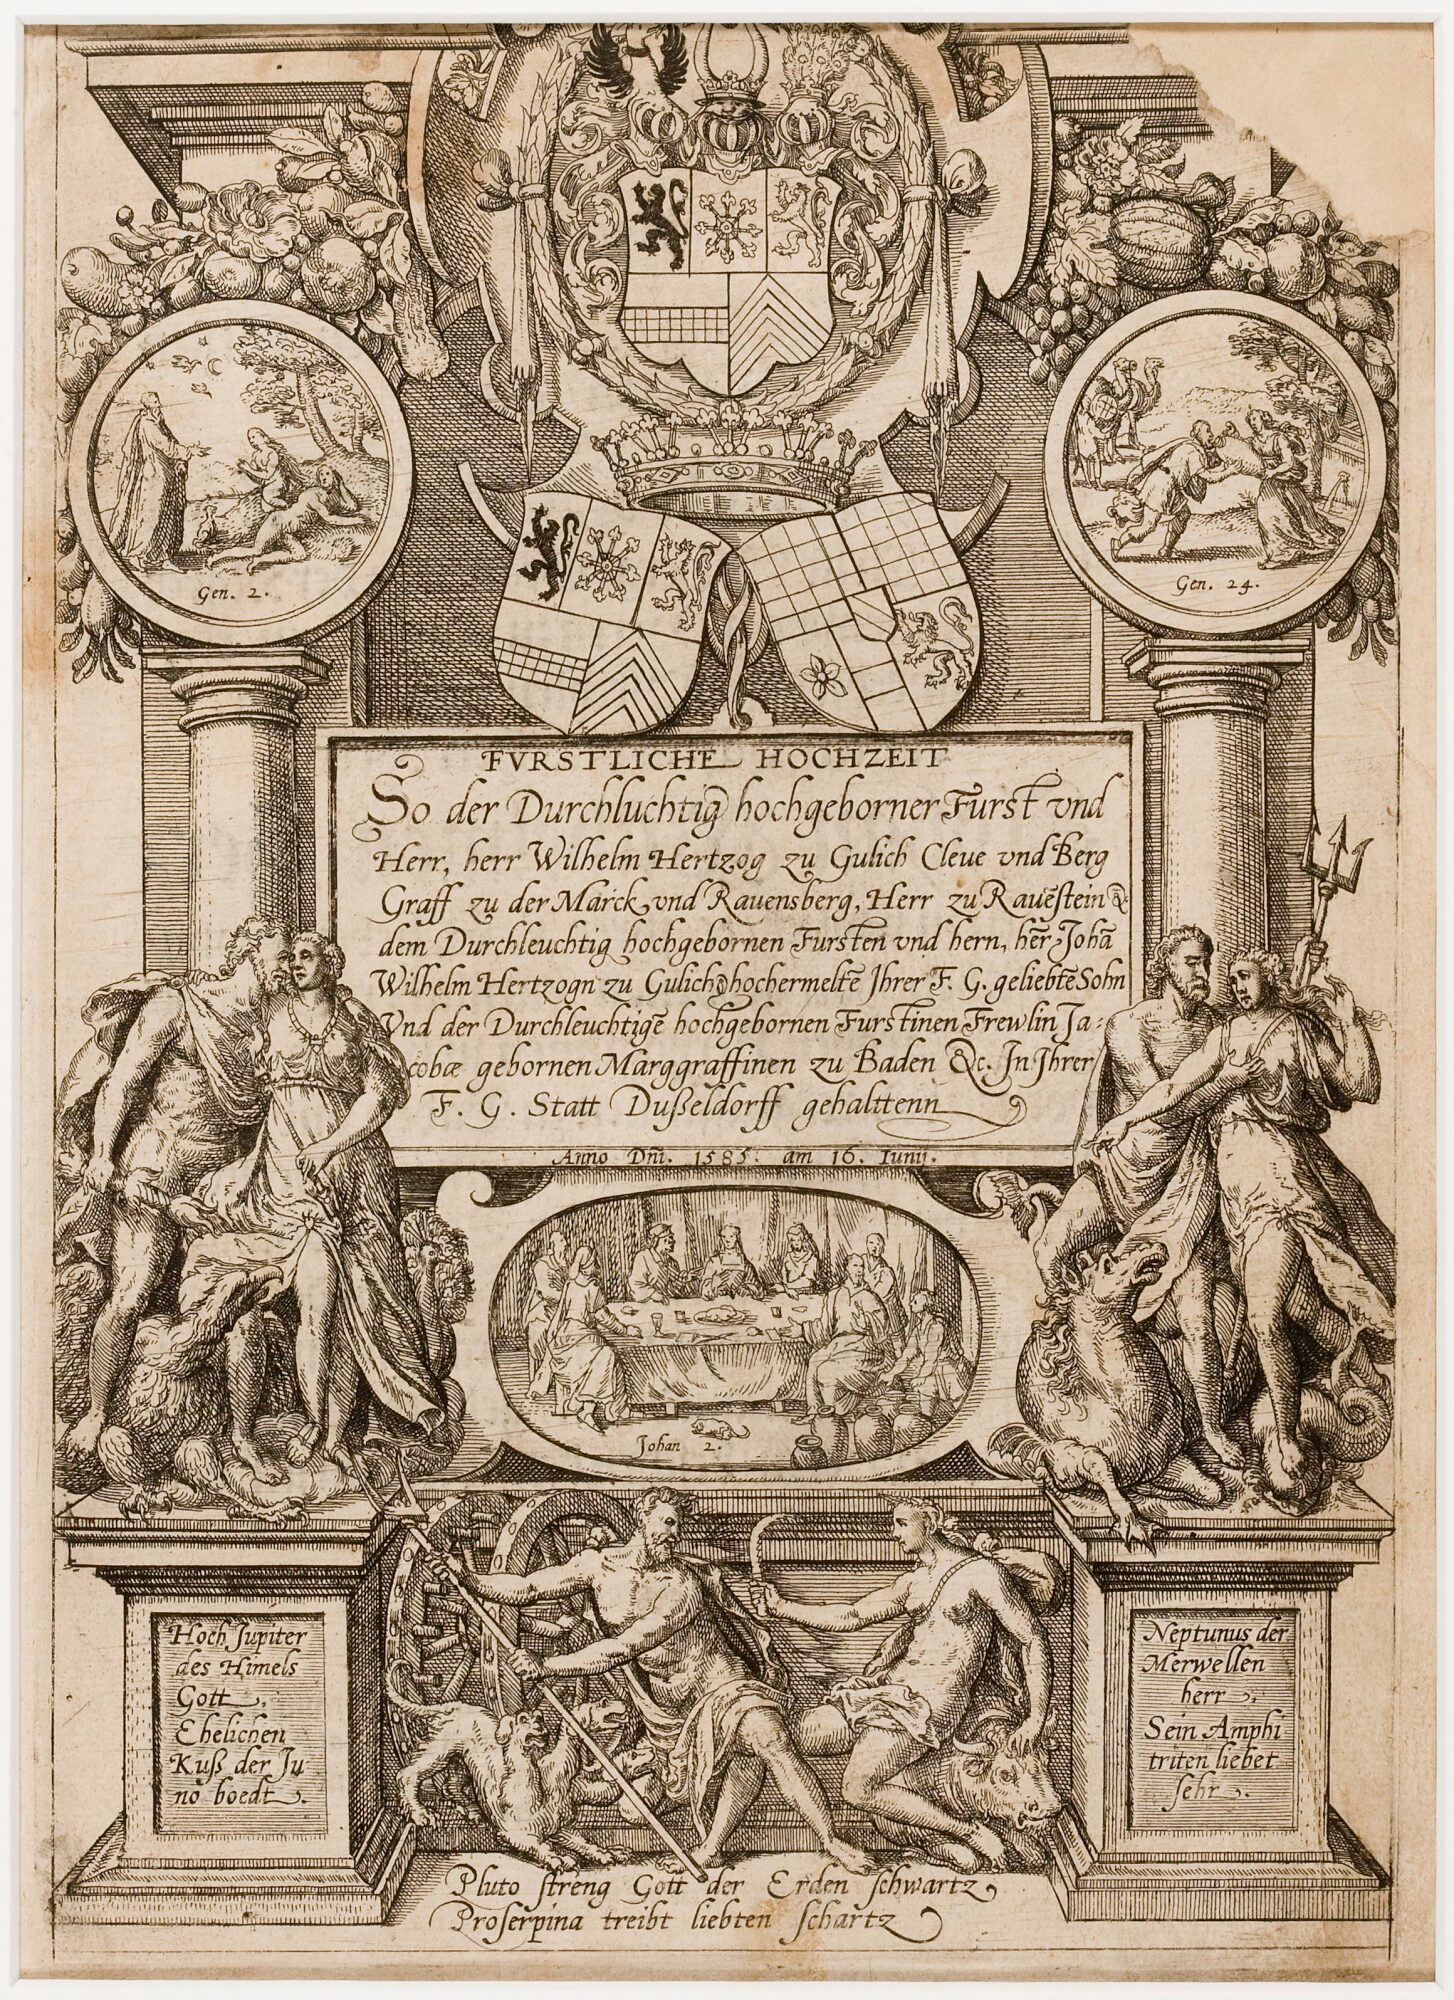 Gen. 2.
Gen. 24.
FVRSTLICHE HOCHZEIT
So der Durchluchtig hochgeborner Furst vnd
Herr, herr Wilhelm Hertzog zu Gulich Cleue vnd Berg
Graff zu der Marck vnd Rauensberg, Herr zu Rauēstein &
dem Durchleuchtig hochgebornen Fursten vnd hern, hēr Johā
Wilhelm Hertzogn zu Gulich & hochermeltē Jhrer F. G. geliebtē Sohn
Vnd der Durchleuchtigē hochgebornen Furstinen Frewlin Ja=
cobæ gebornen Marggraffinen zu Baden &c. In Jhrer
F. G. Statt Dußeldorff gehalttenn
Anno Dnī. 1585. am 16. Iunij.
Johan 2.
Hoch Jupiter
des Himels
Gott,
Ehelichen
Kuß der Ju
no boedt.
Neptunus der
Merwellen
herr,
Sein Amphi
triten liebet
sehr.
Pluto streng Gott der Erden schwartz,
Proserpina treibt liebten schartz